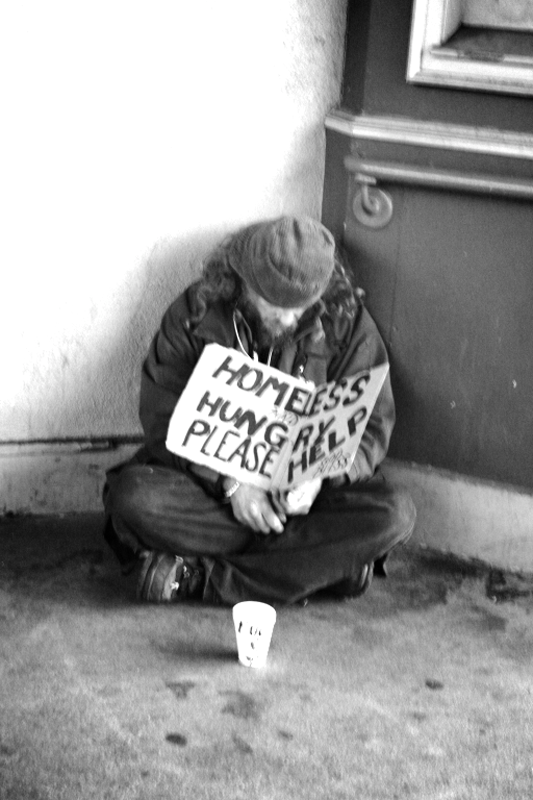 HOMELESS
HUNGRY
PLEASE HELP